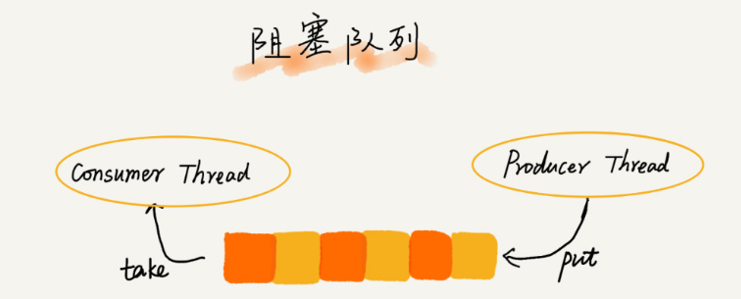 阻塞队列
Consumer Thread
Producer Thread
take
put